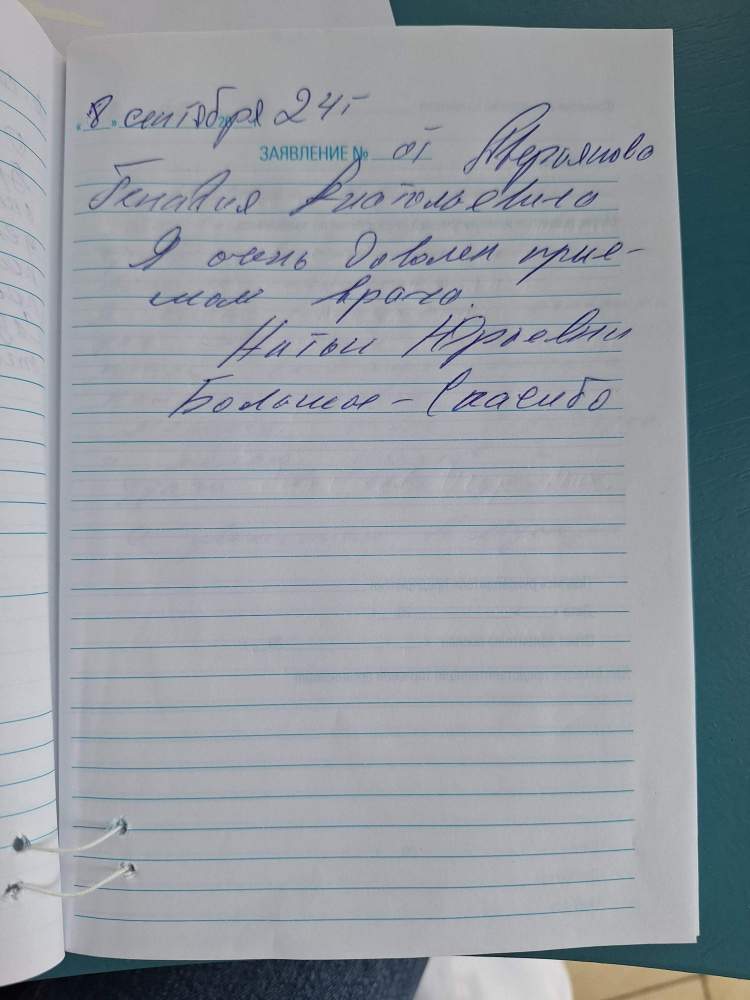 "8" сентября 2024г
ЗАЯВЛЕНИЕ № от
Генадия Анатольевича
Я очень доволен прие-
мом врача.
Юрьевны
Большое - Спасибо